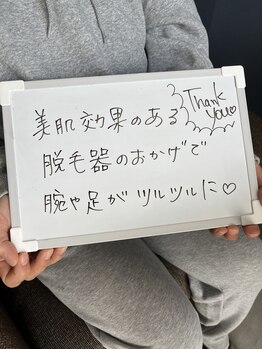 美肌効果のある
Thank
you♡
脱毛器のおかげで
腕や足がツルツルに♡